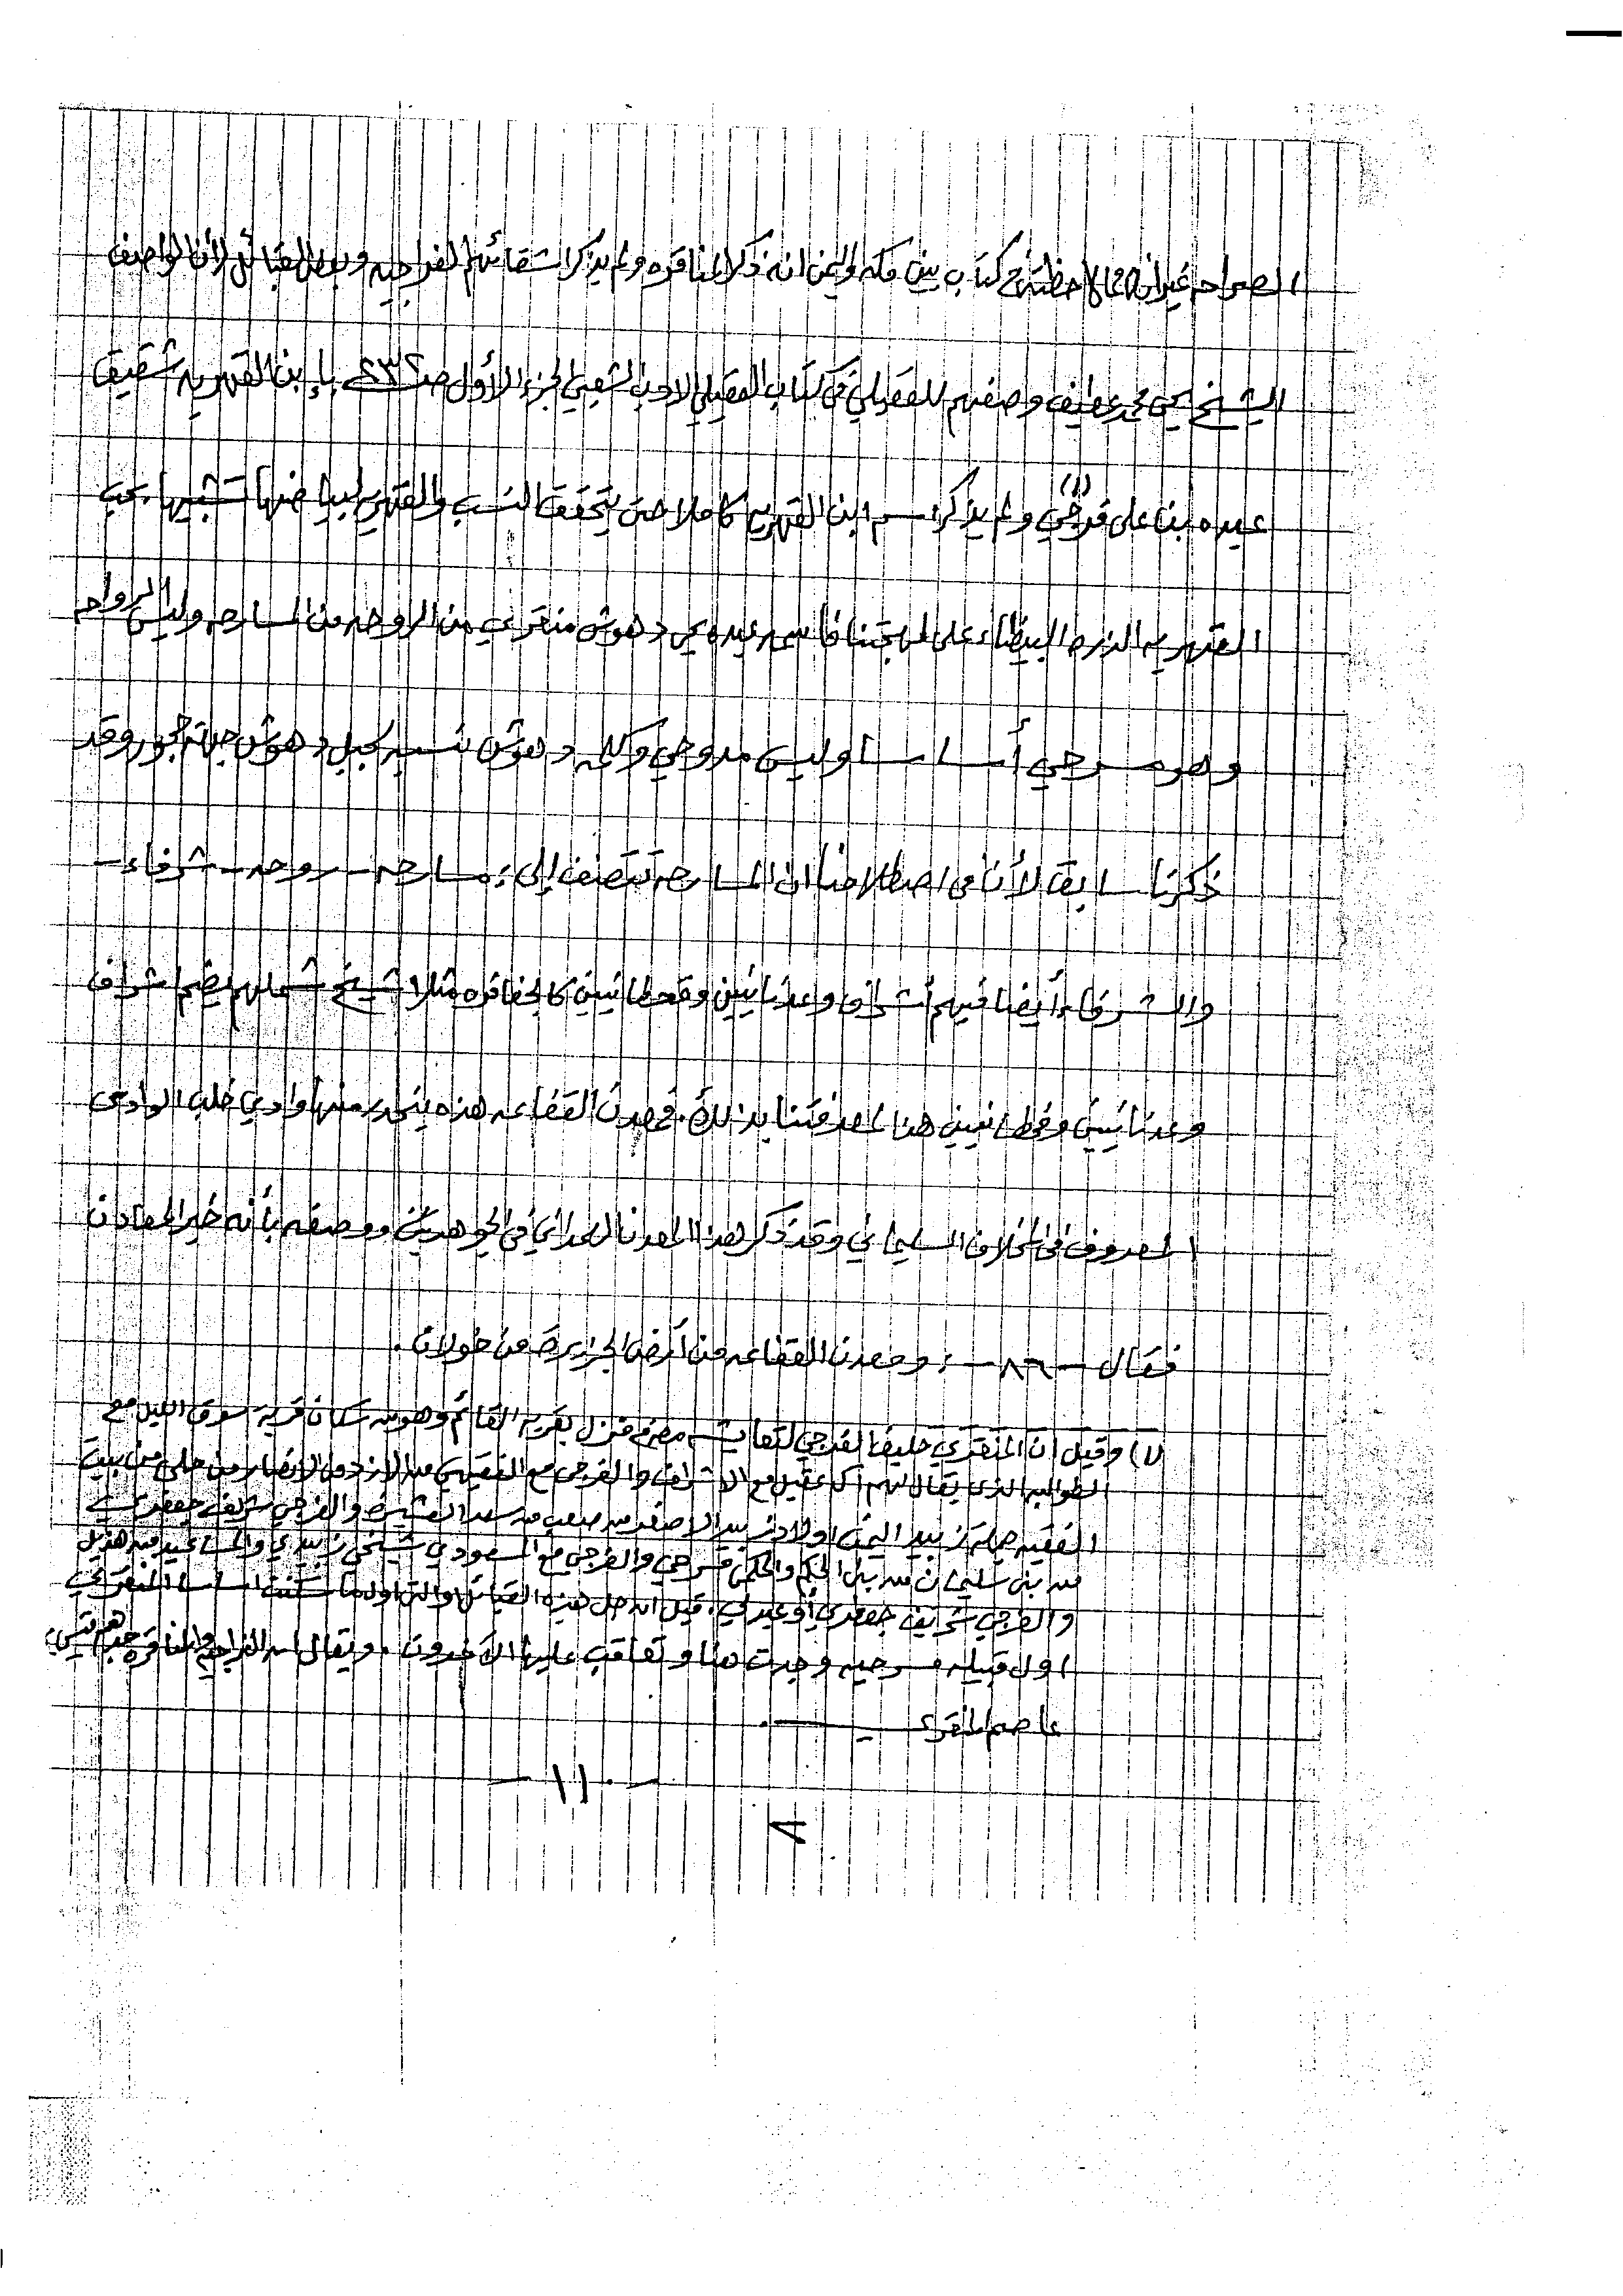 الصراحه غير انه مما لاحظته في كتاب بين مكه واليمن انه ذكر المناقره ولم يذكر اشقائهم الفراجيه وبعض القبائل لأن الواصف
الشيخ يحي محمد عطيف وصفهم للعقيلي في كتاب العقيلي الادب الشعبي الجزء الأول صـ بإبن القهريه شقيق
عبده بن علي فرجي (١) ولم يذكر اسم ابن القهريه كاملا حتى يتحقق النسب والقهريه لبياضها تشبيها بحب
القهريه الذره البيضاء على لهجتنا فاسمه عبده يحي دهوش منقري من الروحه من المسارحه وليس الرواحه
وهو مسرحي أساسا وليس مدوخي وكلمه دهوش نسبه لجبل دهوش جهة حجور وقد
ذكرنا سابقا لأننا في اصطلاحنا ان المسارحه تتصنف إلى : مسارحه - روحه - شرفاء -
والشرفاء أيضا فيهم أشراف وعدنانيين وقحطانيين كالجفافره مثلا شيخ شملهم يضم اشراف
وعدنانيين وقحطانيين هذا معرفتنا بذلك. فمعدن القفاعه هذه ينحدر منها وادي خلب الوادي
المعروف في المخلاف السليماني وقد ذكر هذا المعدن الهمداني في الجوهرتين ووصفه بأنه خير المعادن
فقال - ٨٦ - : ومعدن القفاعه من أرض الجزيرة من خولان .
(١) وقيل ان المنقري حليف الفرجي لتعايشه معهم فنزل بقرية القائم وهو من سكان قرية سوق الليل مع
الطوالبه الذي يقال لهم آل عقيل مع الاشراف والفرجي مع الفقيهي من الازد من الانصار من حلي من بيت
الفقيه جهة زبيد اليمن اولاد زبيد الاصغر من صعب من سعد العشيره والفرجي شريف جعفري
من بني سليمان من بني الحكم والحكمي مسرحي والفرجي مع المسعودي شيخي زبيدي والمساعيد من هذيل
والفرجي شريف جعفري أو عبدلي. قيل انه حل هذه القبائل والتي اول ما سكنت اساسا المنقري
اول قبيله مسرحيه وجدت هنا وتعاقب عليها الآخرون . ويقال ان الفراجيه والمناقره جدهم قيس
عاصم المنقري .
- ١١٠ -
٨